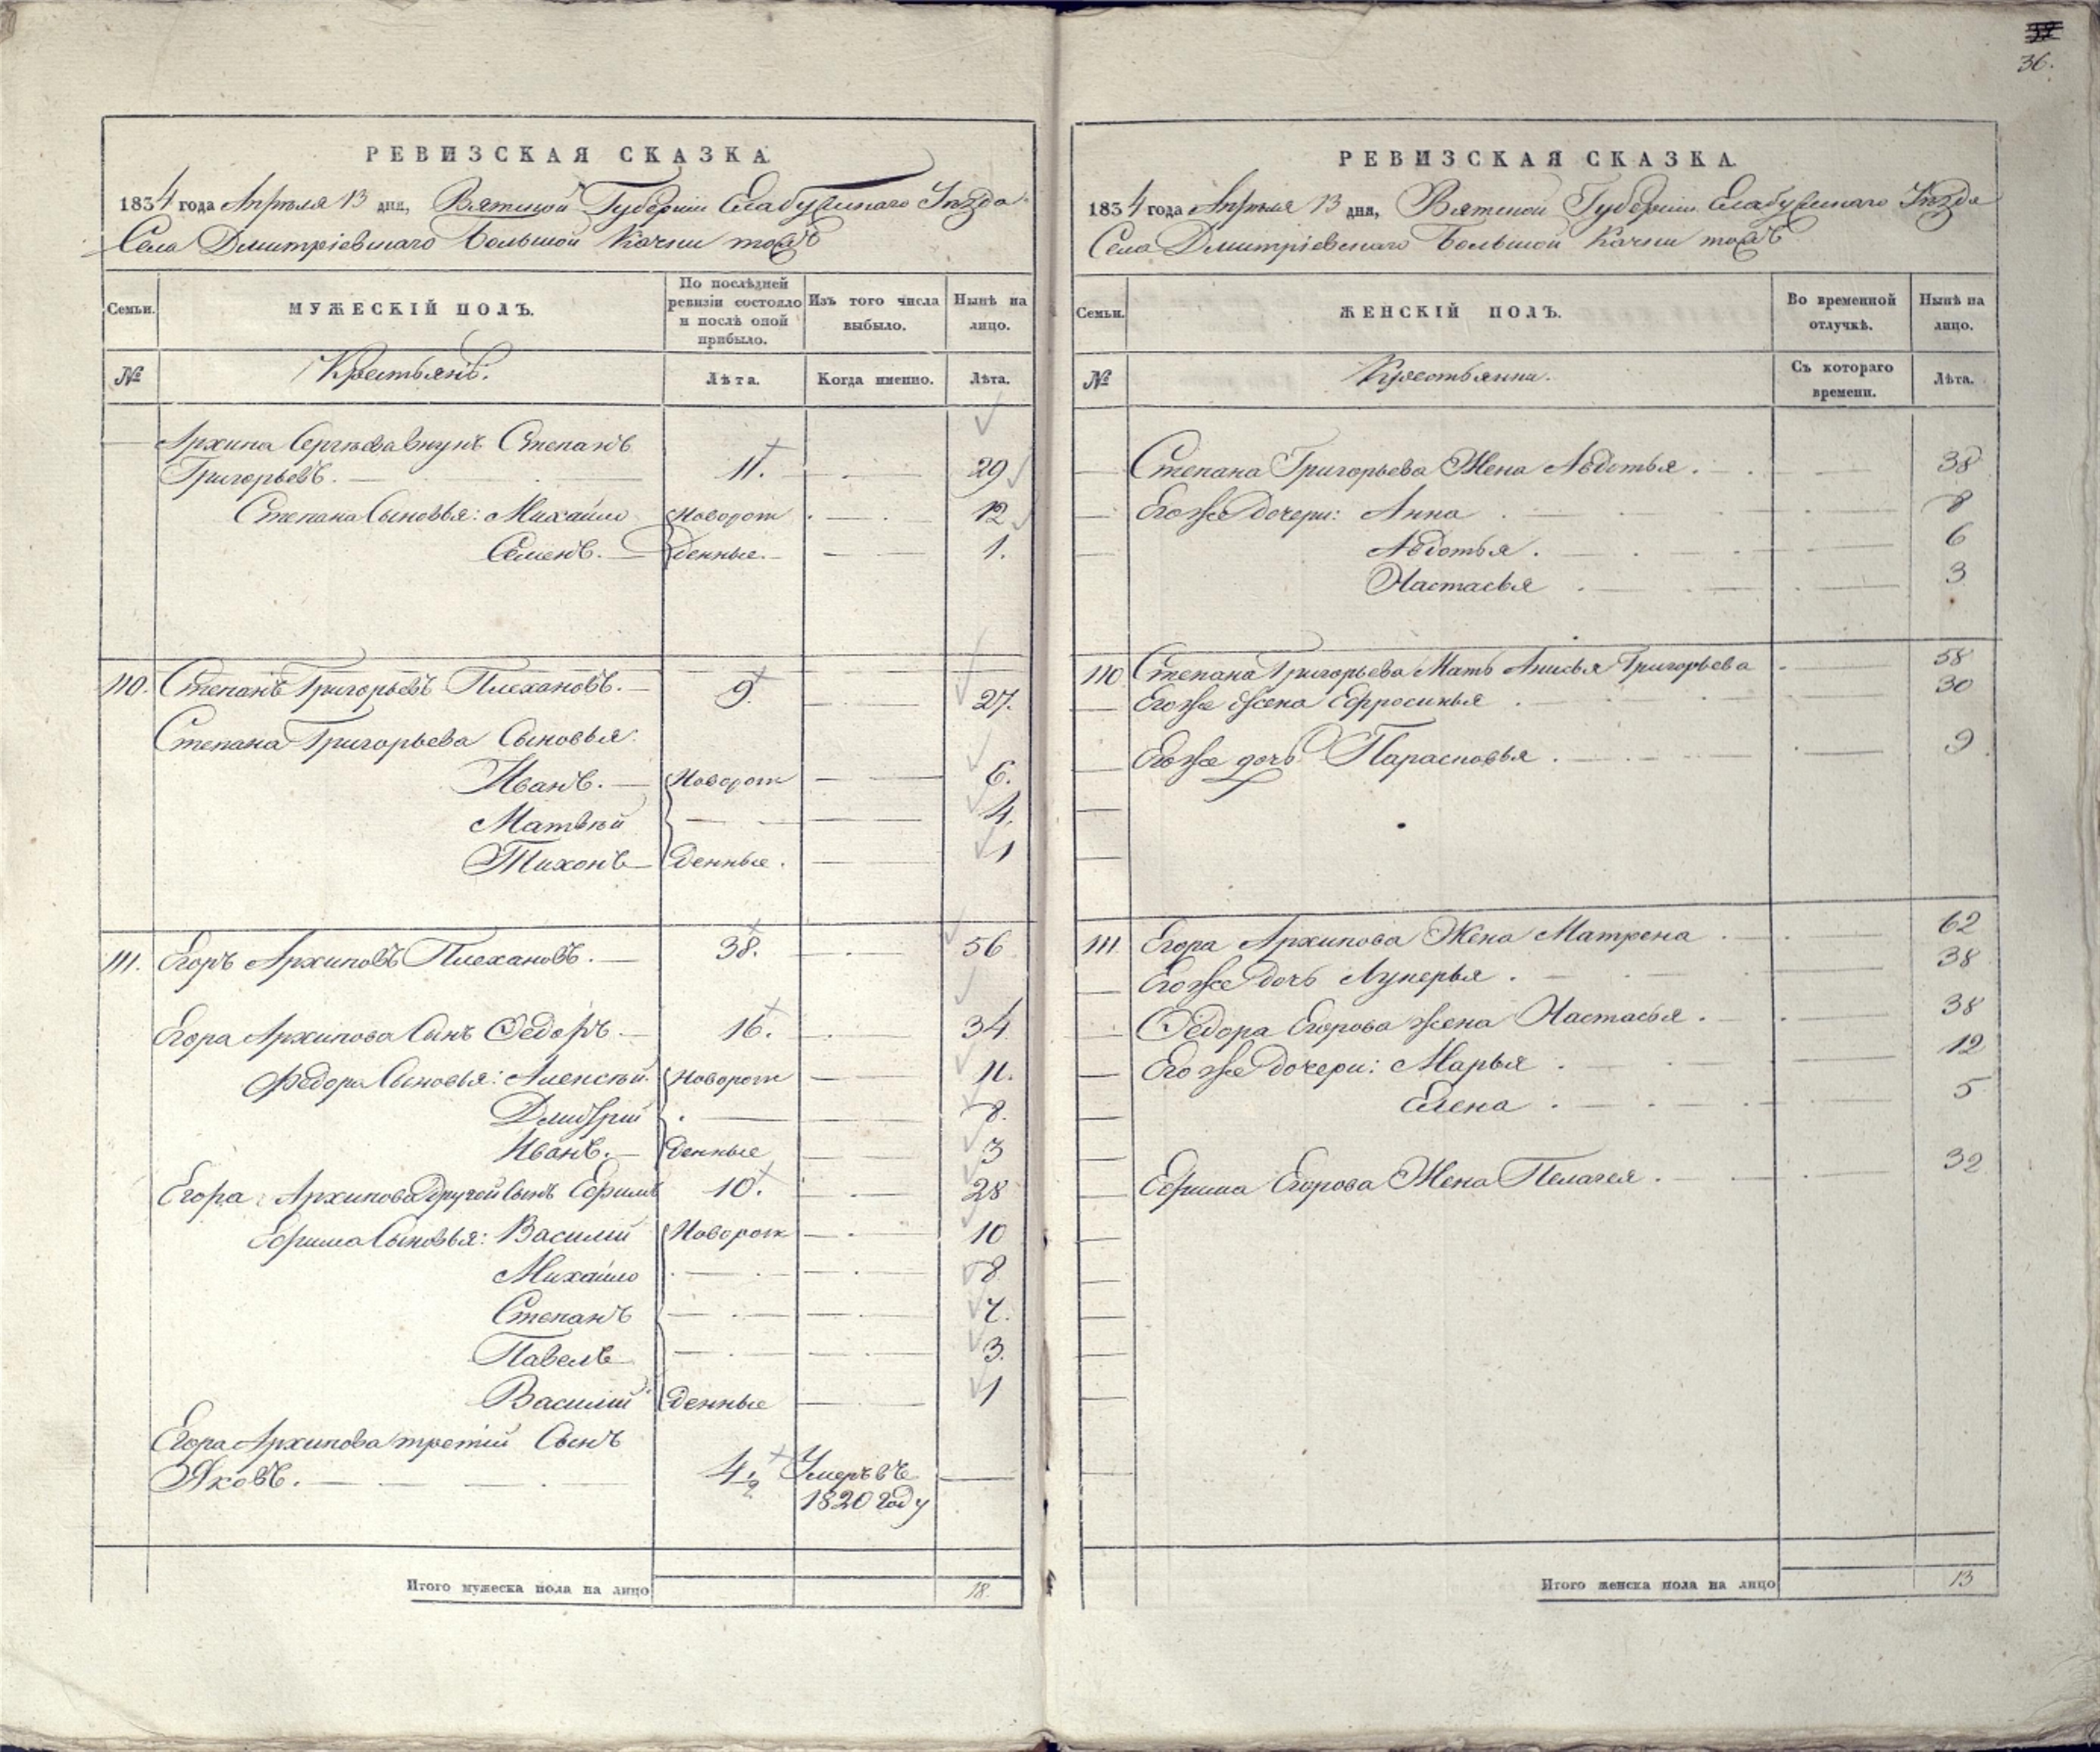 36.
РЕВИЗСКАЯ СКАЗКА
1834 года Апреля 13 дня, Вятской Губернiи Елабужскаго Уѣзда
Села Дмитрiевскаго Большой Качки тожъ
Семьи.
МУЖЕСКІЙ ПОЛЪ.
По послѣдней
ревизіи состояло
и послѣ оной
прибыло.
Изъ того числа
выбыло.
Нынѣ на
лицо.
№
Крестьянъ.
Лѣта.
Когда именно.
Лѣта.
Архипа Сергѣева внукъ Степанъ
Григорьевъ. 11. 29
Степана Сыновья: Михайло Новорож 12
Семенъ. денные. 1.
110. Степанъ Григорьевъ Плехановъ. 9. 27.
Степана Григорьева Сыновья:
Иванъ. Новорож 6.
Матвѣй 4.
Тихонъ денные. 1
111. Егоръ Архиповъ Плехановъ. 38. 56
Егора Архипова Сынъ Федоръ. 16. 34
Федора Сыновья: Алексѣй. Новорож 11.
Дмитрiй 8.
Иванъ. денные 3
Егора Архипова другой сынъ Ефимъ 10. 28
Ефима Сыновья: Василiй Новорож 10
Михайло 8
Степанъ 7.
Павелъ 3.
Василiй денные 1
Егора Архипова третiй Сынъ
Яковъ. 4 1/2 Умеръ въ
1820 году
Итого мужеска пола на лицо 18.
РЕВИЗСКАЯ СКАЗКА
1834 года Апреля 13 дня, Вятской Губернiи Елабужскаго Уѣзда
Села Дмитрiевскаго Большой Качки тожъ
Семьи.
ЖЕНСКІЙ ПОЛЪ.
Во временной
отлучкѣ.
Нынѣ на
лицо.
№
Крестьянки.
Съ котораго
времени.
Лѣта.
Степана Григорьева Жена Авдотья. 38
Егоже дочери: Анна 8
Авдотья. 6
Настасья 3
110 Степана Григорьева Мать Анисья Григорьева 58
Егоже Жена Ефросинья 30
Егоже дочь Парасковья. 9.
111. Егора Архипова Жена Матрена 62
Егоже дочь Лукерья. 38
Федора Егорова жена Настасья. 38
Егоже дочери: Марья 12
Елена 5
Ефима Егорова Жена Пелагея. 32
Итого женска пола на лицо 13